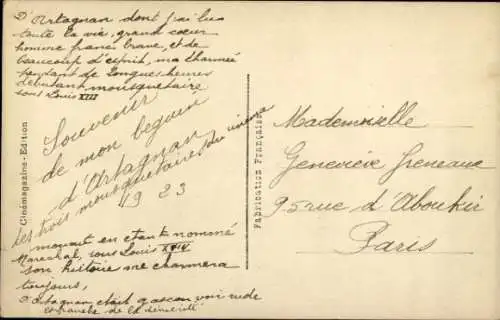 D'Artagnan dont j'ai lu
toute la vie, grand cœur
homme franc brave, et de
beaucoup d'esprit, m'a charmée
pendant de longues heures
débutant mousquetaire
sous Louis XIII
Souvenir
de mon beguin
d'Artagnan
les trois mousquetaires du cinema
1923
mourut en étant nommé
Marechal, sous Louis XIV
son histoire me charmera
toujours,
D'Artagnan était gascon voir rude
de la
Cinémagazine-Edition
Fabrication Française
Mademoiselle
Geneviève
95 rue d'Aboukir
Paris